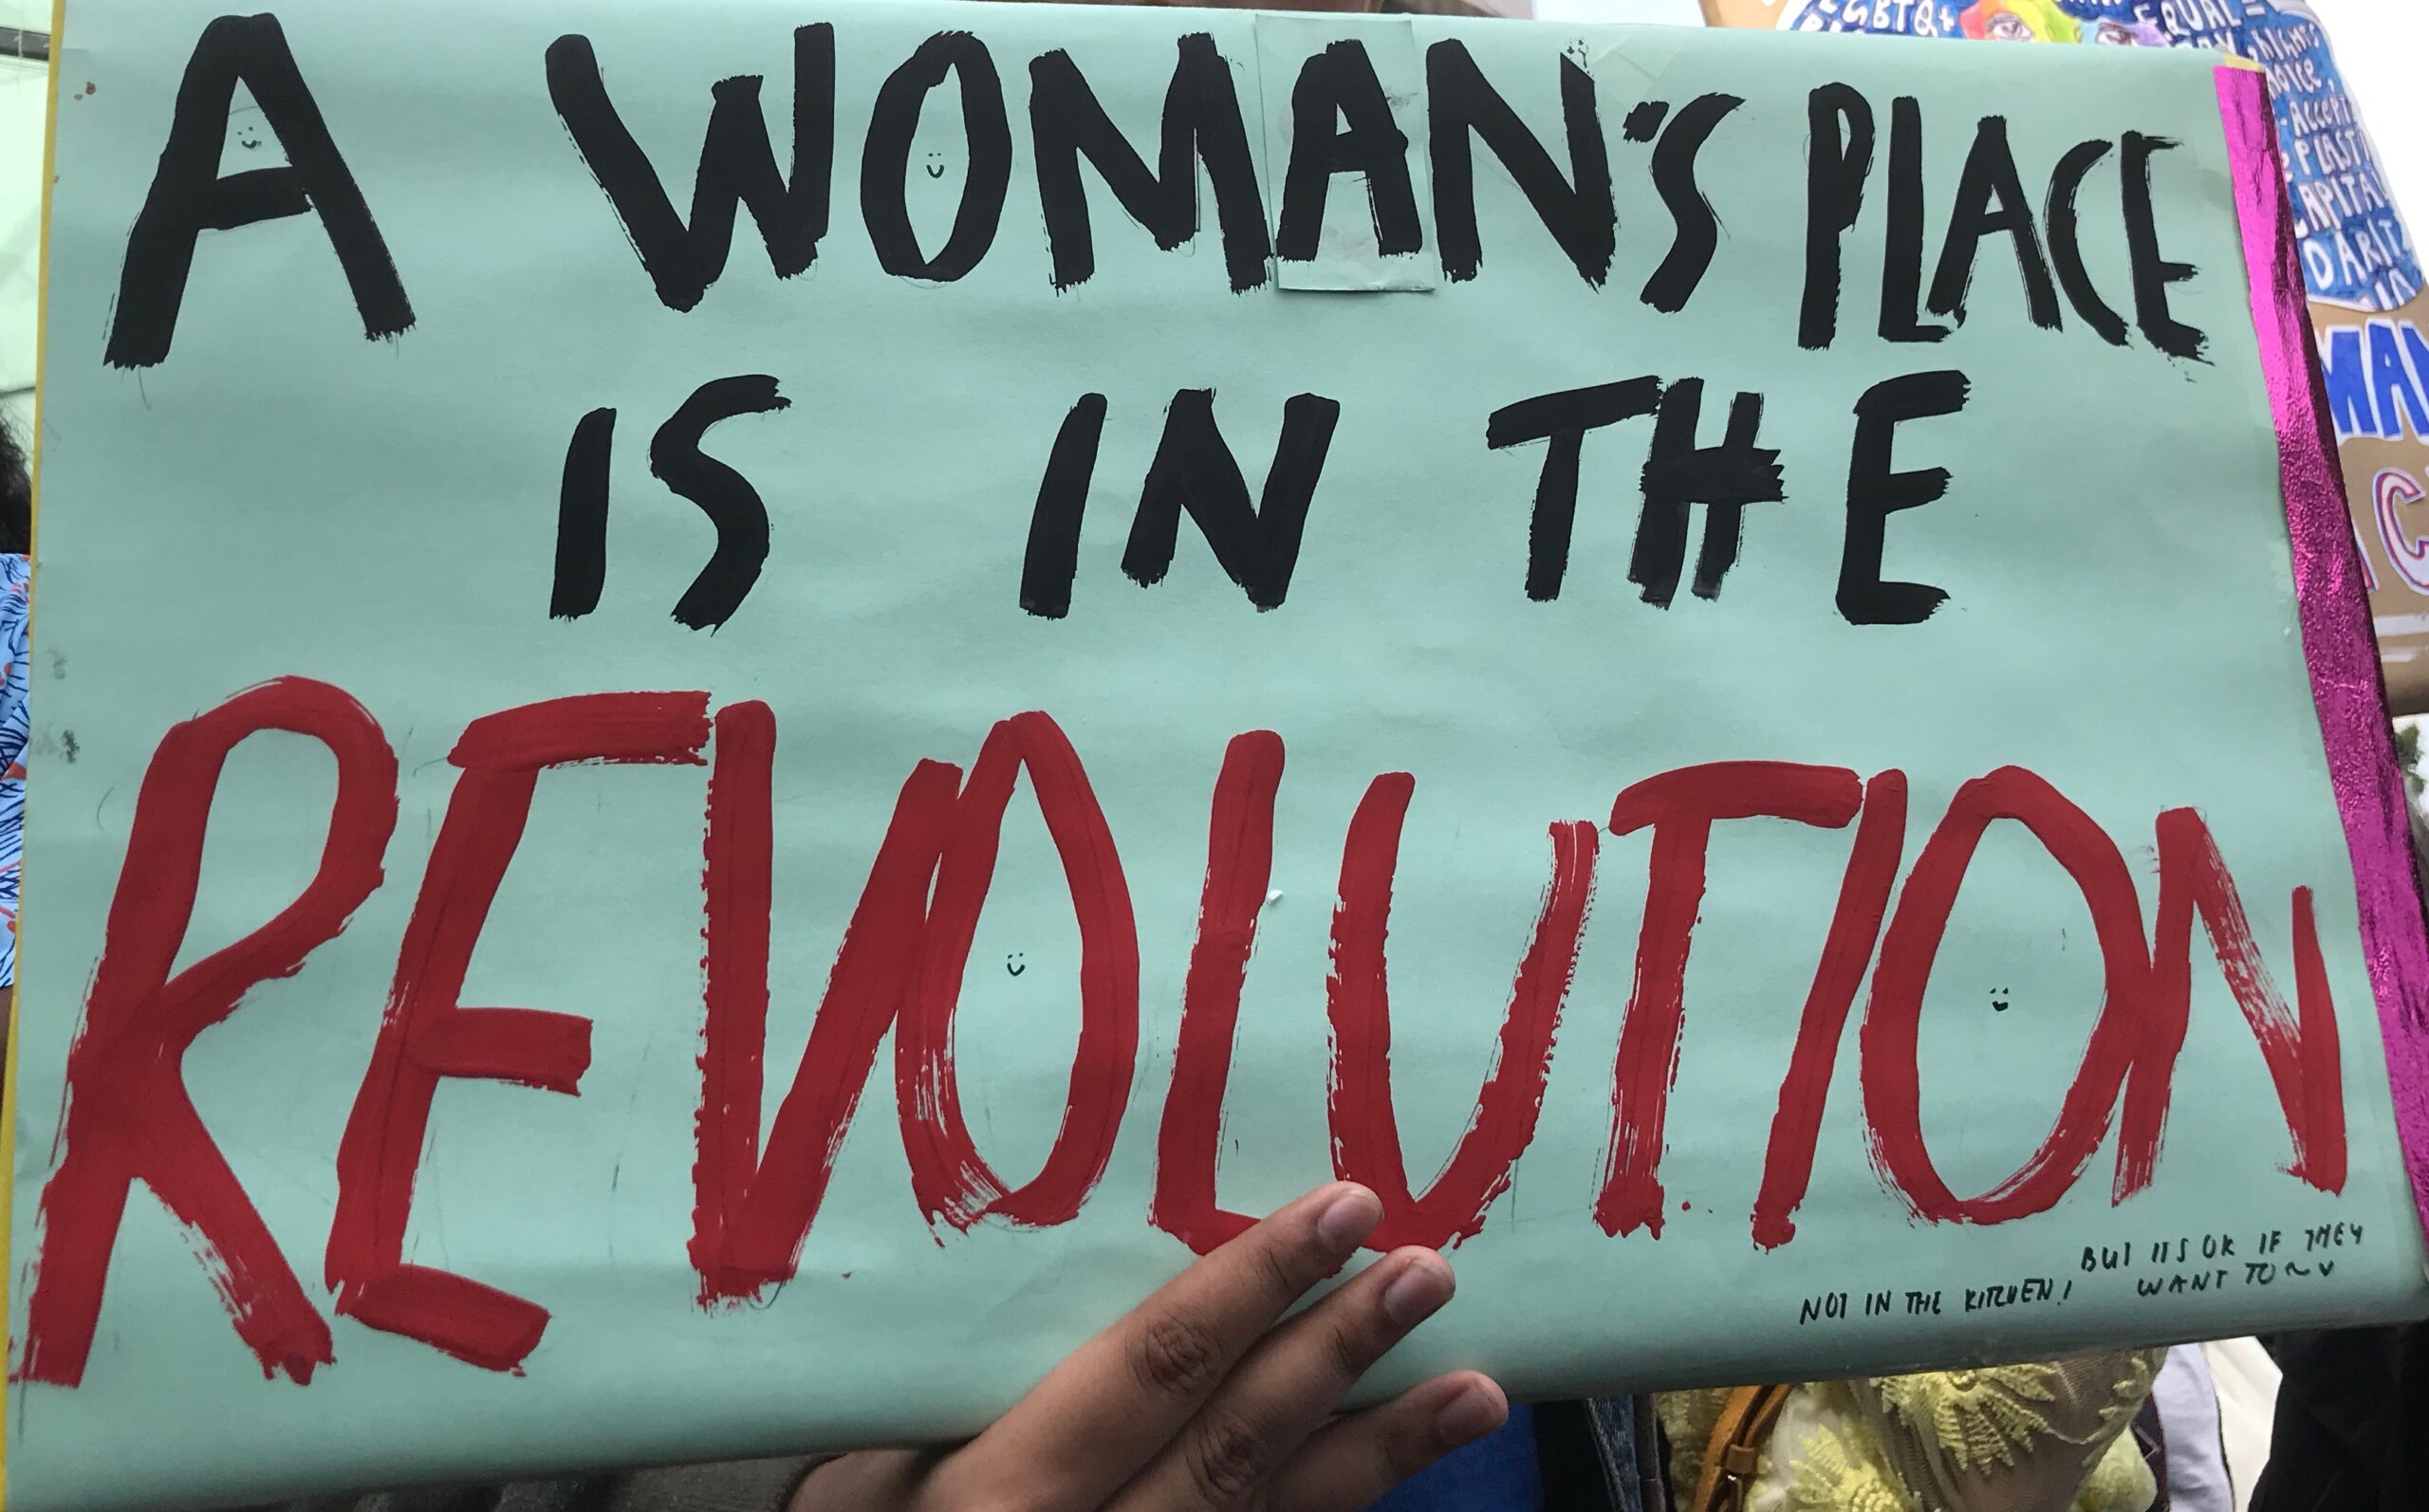 A WOMAN'S PLACE
IS IN THE
REVOLUTION
NOT IN THE KITCHEN!
BUT ITS OK IF THEY
WANT TO ~
LGBTQ+
EQUAL =
ACCEPT
DARIT
MAN